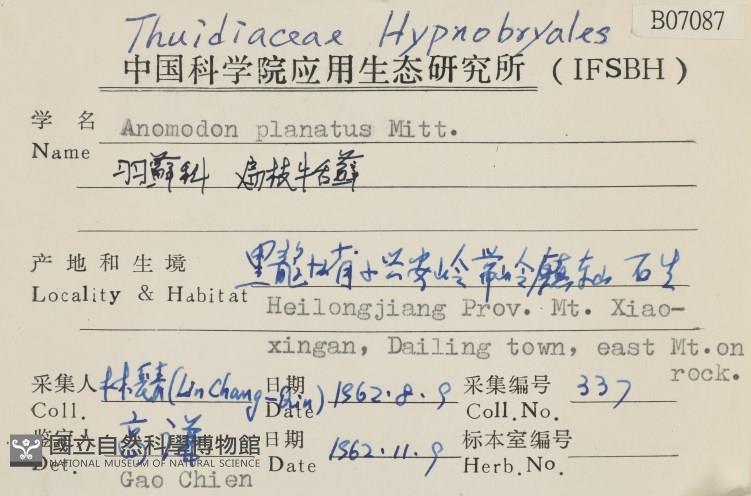 B07087
Thuidiaceae Hypnobryales
中国科学院应用生态研究所 (IFSBH)
学名 Anomodon planatus Mitt.
Name
羽蘚科 扁枝牛舌蘚
产地和生境 黑龍江省小兴安岭帶岭鎮东山 石生
Locality & Habitat Heilongjiang Prov. Mt. Xiao-
xingan, Dailing town, east Mt.on
rock.
采集人 (Lin Chang-Shin) 日期 1962.8.9 采集编号 337
Coll. Date Coll.No.
鉴定人 高谦 日期 1962.11.9 标本室编号
Det. Date Herb.No.
Gao Chien
國立自然科學博物館
NATIONAL MUSEUM OF NATURAL SCIENCE